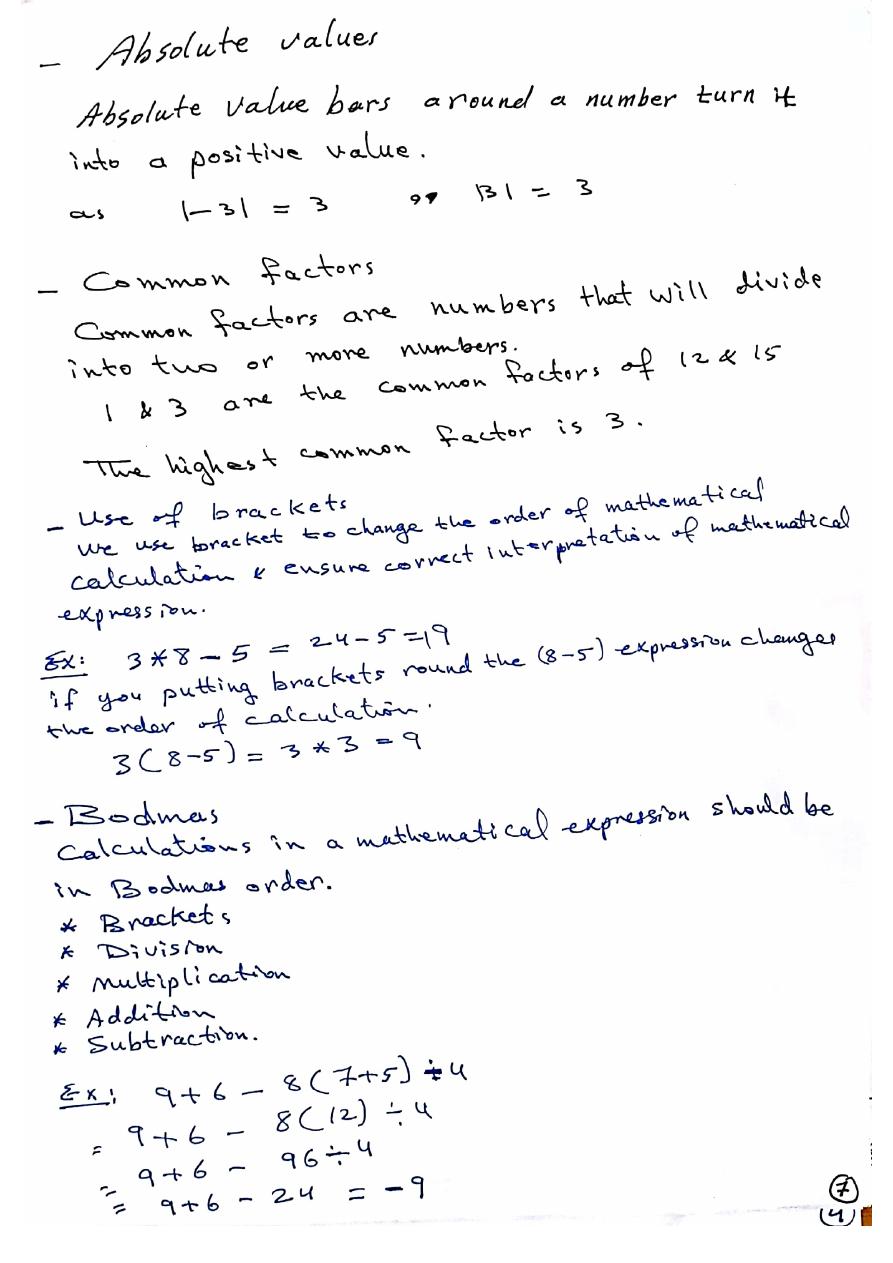 - Absolute values
Absolute value bars around a number turn it
into a positive value.
as |-3| = 3 ,, |3| = 3
- Common factors
Common factors are numbers that will divide
into two or more numbers.
1 & 3 are the common factors of 12 & 15
The highest common factor is 3.
- Use of brackets
we use bracket to change the order of mathematical
calculation & ensure correct interpretation of mathematical
expression.
Ex: 3*8-5 = 24-5 =19
if you putting brackets round the (8-5) expression changes
the order of calculation.
3(8-5) = 3*3 = 9
- Bodmas
Calculations in a mathematical expression should be
in Bodmas order.
* Brackets
* Division
* Multiplication
* Addition
* Subtraction.
Ex: 9+6 - 8(7+5) ÷4
= 9+6 - 8(12) ÷4
= 9+6 - 96÷4
= 9+6 - 24 = -9
7
(4)